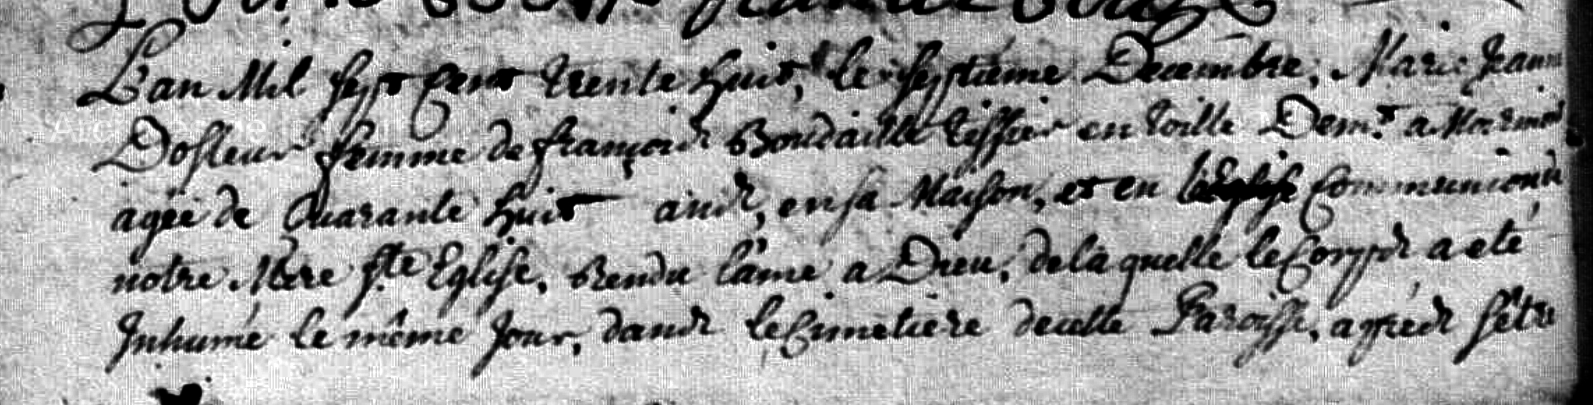 L'an Mil sept cent trente huit, le septiéme Decembre, Marie Jeanne
Dofleur femme de françois Boudaille tissier en toille Dem.t a
agée de Quarante huit ans, en sa Maison, et en Communion de
notre Mere s.te Eglise, Rendu l'ame a Dieu, de la quelle le Corps a eté
Inhumé le même Jour, dans le Cimetiere de cette Paroisse, aprés s'etre